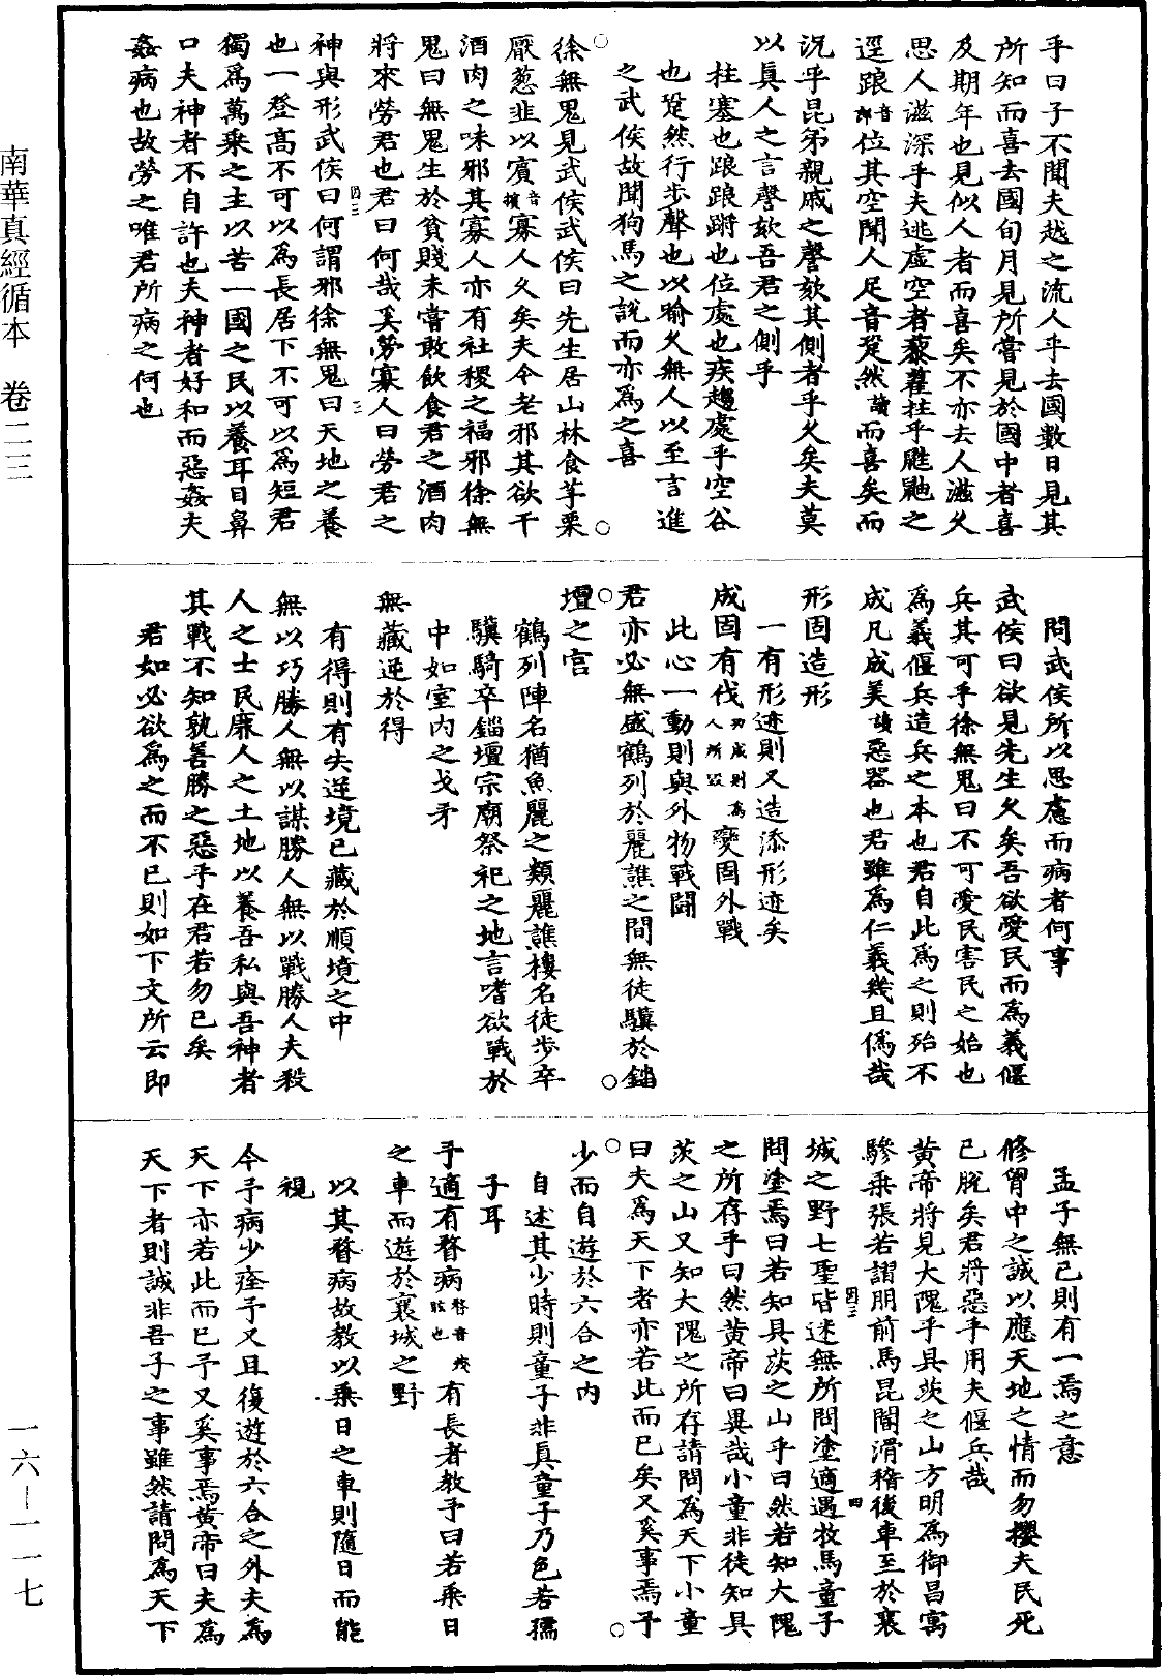 乎曰子不聞夫越之流人乎去國數日見其
所知而喜去國旬月見所嘗見於國中者喜
及期年也見似人者而喜矣不亦去人滋久
思人滋深乎夫逃虛空者藜藿拄乎鼪鼬之
逕踉音郎位其空聞人足音跫然讀而喜矣而
況乎昆弟親戚之謦欬其側者乎久矣夫莫
以真人之言謦欬吾君之側乎
拄塞也踉踉蹡也位處也疾趨處乎空谷
也跫然行步聲也以喻久無人以至言進
之武侯故聞狗馬之說而亦為之喜
徐無鬼見武侯武侯曰先生居山林食芧栗
厭葱韭以賓音擯寡人久矣夫今老邪其欲干
酒肉之味邪其寡人亦有社稷之福邪徐無
鬼曰無鬼生於貧賤未嘗敢飲食君之酒肉
將來勞君也君曰何哉奚勞寡人曰勞君之
神與形武侯曰何謂邪徐無鬼曰天地之養
也一登高不可以為長居下不可以為短君
獨為萬乘之主以苦一國之民以養耳目鼻
口夫神者不自許也夫神者好和而惡姦夫
姦病也故勞之唯君所病之何也
問武侯所以思慮而病者何事
武侯曰欲見先生久矣吾欲愛民而為義偃
兵其可乎徐無鬼曰不可愛民害民之始也
為義偃兵造兵之本也君自此為之則殆不
成凡成美讀惡器也君雖為仁義幾且偽哉
形固造形
一有形迹則又造添形迹矣
成固有伐功成則為人所敓變固外戰
此心一動則與外物戰鬭
君亦必無盛鶴列於麗譙之間無徒驥於錙
壇之宮
鶴列陣名猶魚麗之類麗譙樓名徒步卒
驥騎卒錙壇宗廟祭祀之地言嗜欲戰於
中如室內之戈矛
無藏逆於得
有得則有失逆境已藏於順境之中
無以巧勝人無以謀勝人無以戰勝人夫殺
人之士民廉人之土地以養吾私與吾神者
其戰不知孰善勝之惡乎在君若勿已矣
君如必欲為之而不已則如下文所云即
孟子無已則有一焉之意
修胷中之誠以應天地之情而勿攖夫民死
已脫矣君將惡乎用夫偃兵哉
黃帝將見大隗乎具茨之山方明為御昌㝢
驂乘張若謵朋前馬昆閽滑稽後車至於襄
城之野七聖皆迷無所問塗適遇牧馬童子
問塗焉曰若知具茨之山乎曰然若知大隗
之所存乎曰然黃帝曰異哉小童非徒知具
茨之山又知大隗之所存請問為天下小童
曰夫為天下者亦若此而已矣又奚事焉予
少而自遊於六合之內
自述其少時則童子非真童子乃色若孺
子耳
予適有瞀病瞀音眩也有長者教予曰若乘日
之車而遊於襄城之野
以其瞀病故教以乘日之車則隨日而能
視
今予病少痊予又且復遊於六合之外夫為
天下亦若此而已予又奚事焉黃帝曰夫為
天下者則誠非吾子之事雖然請問為天下
南華真經循本　卷二三
一六—一一七